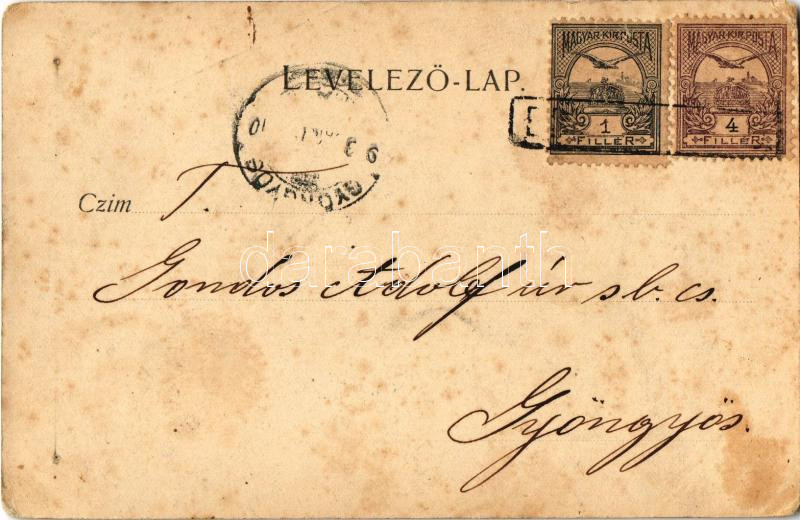 LEVELEZŐ-LAP.
MAGYAR·KIR·POSTA
1
FILLÉR
MAGYAR·KIR·POSTA
4
FILLÉR
GYÖNGYÖS
Czim T.
Gondos Adolf úr sb. cs.
Gyöngyös.
darabanth